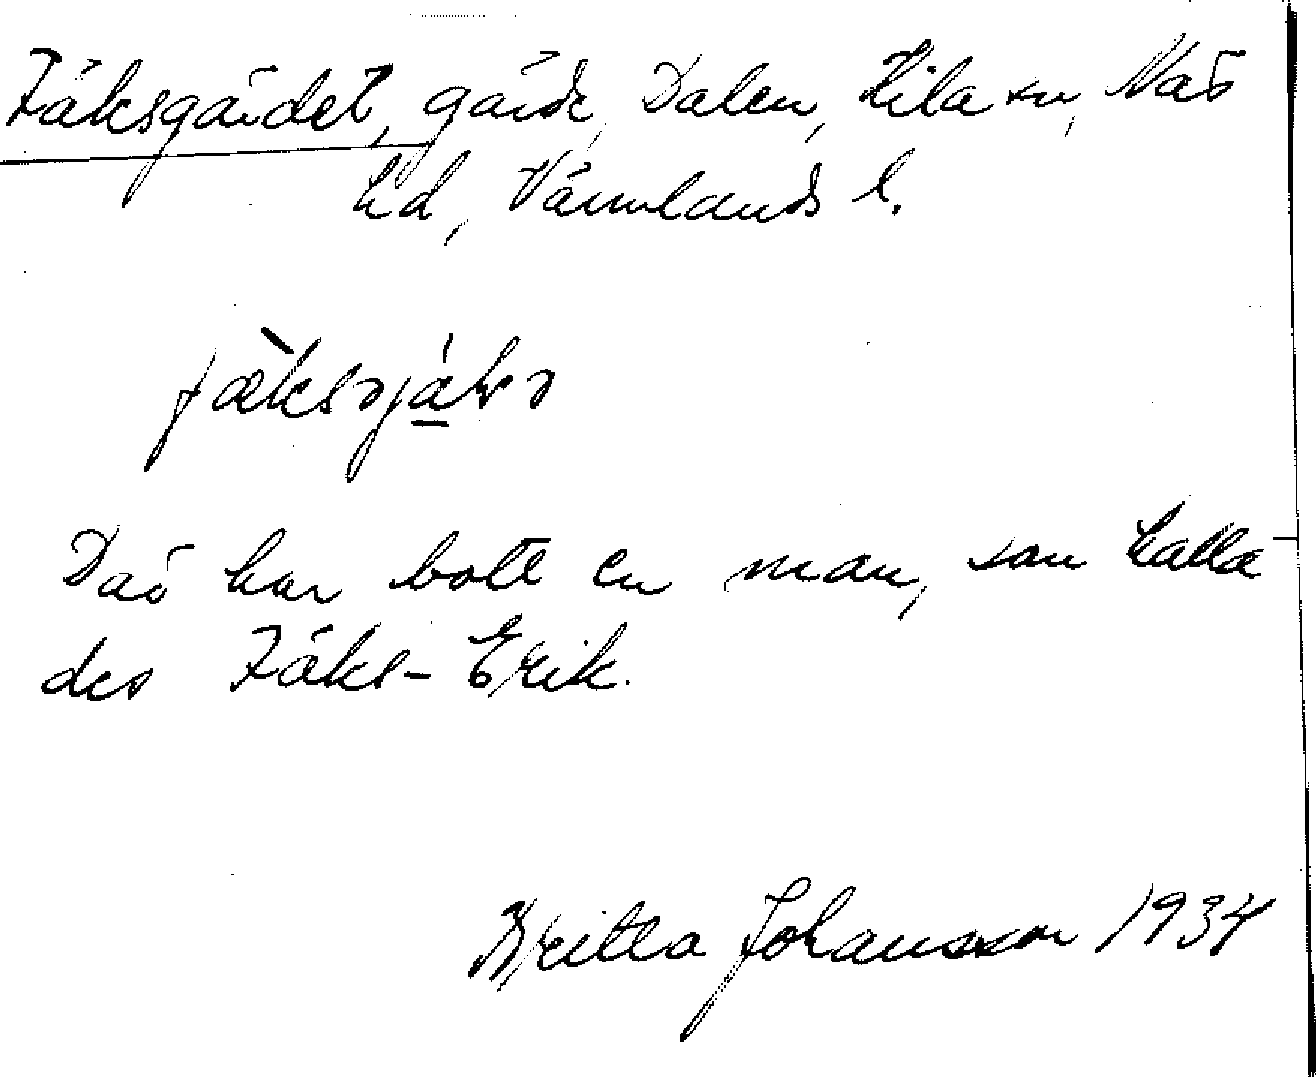 Fäksgärdet, gärde, Dalen, Kila sn, Näs
hd, Värmlands l.
Där har bott en man, som kalla
des Fäks-Erik.
Britta Johansson 1934